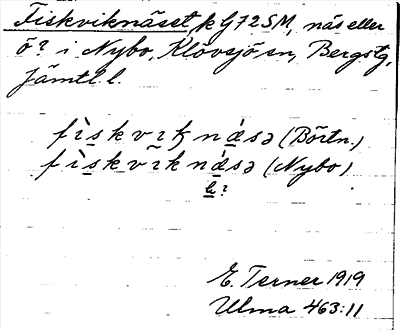 Fiskviknäset, k G72SM, näs eller
ö? i Nybo, Klövsjö sn, Bergs tg,
Jämtl. l.
fìskvɩꞣnǽsə (Börtn.)
fìskvɩ̄knǽsə (Nybo)
k?
E. Terner 1919
Ulma 463:11